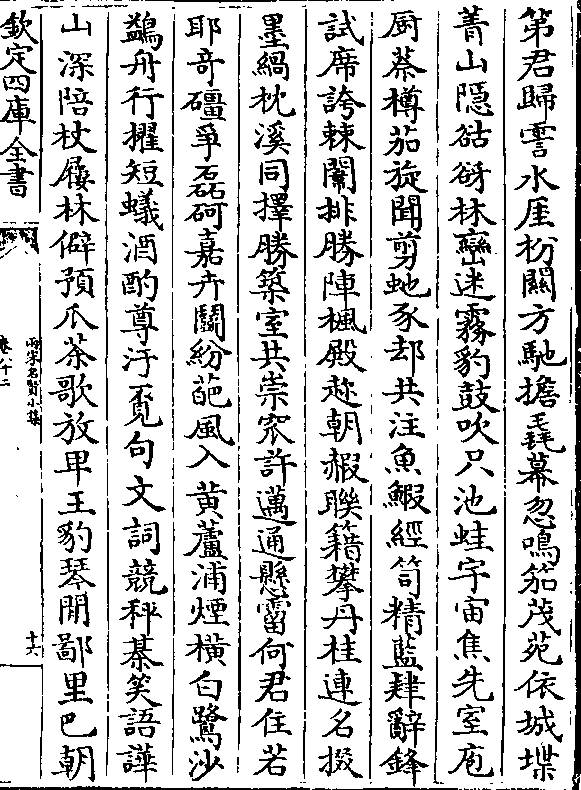 第君歸霅水厓枌關方馳擔毳幕忽鳴笳茂苑依城堞
菁山隱谽谺林巒迷霧豹鼓吹只池蛙宇宙焦先室庖
厨蔡樽茄旋聞剪虵豕却共注魚鰕經笥精藍肆辭鋒
試席誇棘闈排勝陣楓殿趂朝赮聯籍攀丹桂連名掇
墨緺枕溪同擇勝築室共崇窊許邁通懸霤何君住若
耶竒礓爭磊砢嘉卉鬭紛葩風入黄蘆浦煙橫白鷺沙
鷁舟行擢短蟻酒酌尊汙覔句文詞競秤棊笑語譁
山深陪杖屨林僻預瓜茶歌放甲王豹琴閒鄙里巴朝
欽定四庫全書
兩宋名賢小集
十六